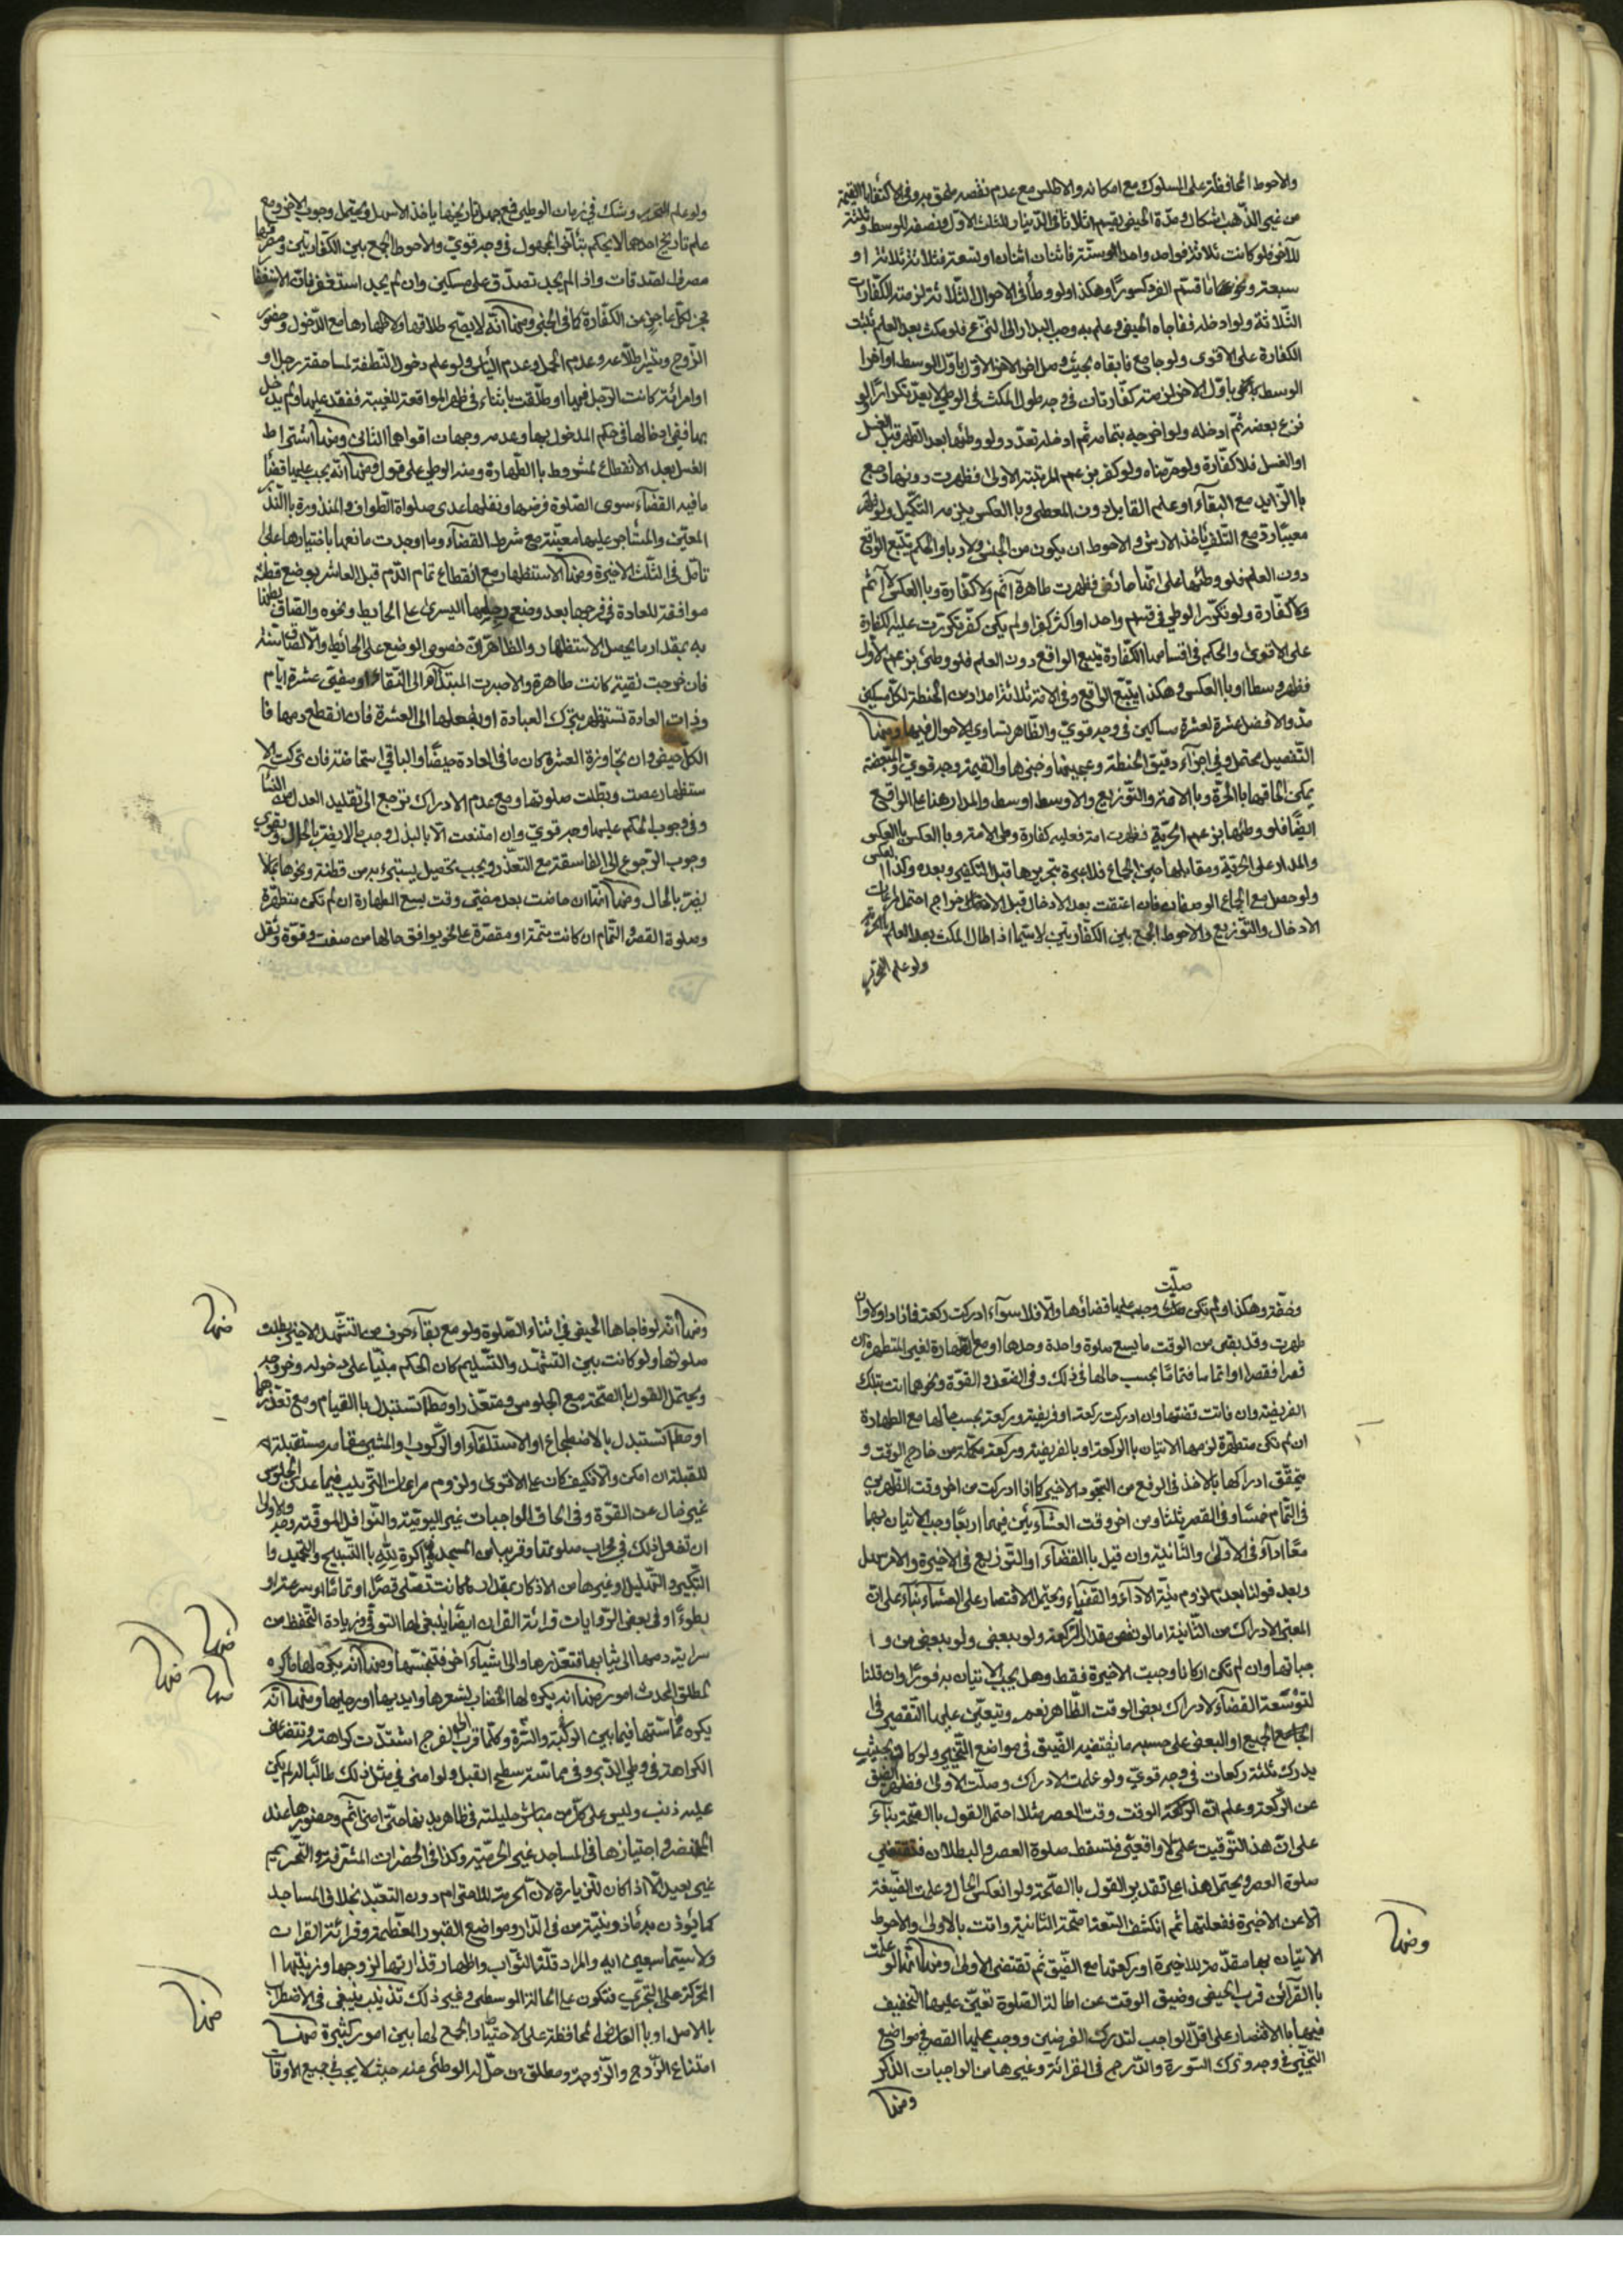 والاحوط المحافظة على المسكوك مع امكانه والاطلس مع عدم نقصه ملحق به وفى الاكتفاء بالقيمة
من غير الذهب اشكال ومدة الحيض يقسم اثلاثا فالدينار للثلث الاول ونصفه للوسط وثلثه
للآخر فلو كانت ثلاثة فواحد واحد او ستة فاثنان اثنان او تسعة فثلاثة ثلاثة او
سبعة ونحوها قسم الفرد كسورا وهكذا ولو وطأ فى الاحوال الثلاثة لزمته الكفارات
الثلاثة ولو ادخله ففاجاه الحيض وعلم به وجب البدار الى النزع فلو مكث بعد العلم ثبت
الكفارة على الاقوى ولو جامع فابقاه بحيث وصل اخر الاول باول الوسط او اخر
الوسط باول الاخر لزمته كفارتان فى وجه وطول المكث فى الوطى لا يعد تكرارا ولو
نزع بعضه ثم ادخله ولو اخرجه بتمامه ثم ادخله تعدد ولو وطئها بعد الطهر قبل الغسل
او الغسل فلا كفارة ولو حرمناه ولو كفر بزعم المرتبة الاولى فظهرت دونها رجع
بالزايد مع البقاء او علم القابل دون المعطى وبالعكس يلزمه التكميل ولو ظهر
معيبا رده مع التلف ياخذ الارش والاحوط ان يكون من الجنس ولا ربا والحكم يتبع الواقع
دون العلم فلو وطئها على انها حائض فظهرت طاهرة اثم ولا كفارة وبالعكس لا اثم
ولا كفارة ولو تكرر الوطى فى قسم واحد او اكثر كفر او لم يكن كفر تكررت عليه الكفارة
على الاقوى والحكم فى اقسام الكفارة يتبع الواقع دون العلم فلو وطئ بزعم الاول
فظهر وسطا او بالعكس وهكذا يتبع الواقع وفى الامة ثلاثة امداد من الحنطة لكل مسكين
مد والافضل عشرة لعشرة مساكين فى وجه قوى والظاهر تساوى الاحوال فيها ومنها
التفصيل محتمل وفى اجزاء دقيق الحنطة وعجينها وخبزها والقيمة وجه قوى والمبعضة
يمكن الحاقها بالحرة وبالامة والتوزيع والاوسط اوسط والمدار هنا على الواقع
ايضا فلو وطئها بزعم الحرية فظهرت امة فعليه كفارة وطى الامة وبالعكس بالعكس
والمدار على الحرية ومقابلها حين الجماع فلا عبرة بتحريرها قبل التكفير وبعده وكذا العكس
ولو حصل مع الجماع الوصفان فان اعتقت بعد الادخال قبل الاخراج احتمل مراعات
الادخال والتوزيع والاحوط الجمع بين الكفارتين لاسيما اذا طال المكث بعد العلم بالحرية
ولو علم التحرير
ولو علم التحرير وشك فى زمان الوطى فمع جهل تاريخهما ياخذ الاسهل ويحتمل وجوب الاخر ومع
علم تاريخ احدهما لا يحكم بتأخر المجهول فى وجه قوى والاحوط الجمع بين الكفارتين ومصرفها
مصرف الصدقات واذا لم يجد تصدق على مسكين وان لم يجد استغفر فان الاستغفار
يجزى لكل عاجز من الكفارة كما فى الخبر ومنها انه لا يصح طلاقها ولا ظهارها مع الدخول وحضور
الزوج وتيسر اطلاعه وعدم الحمل وعدم اليأس ولو علم دخول النطفة لمساحقة رجل او
امرأة كانت الرجل فيها او طلقت بناء فى ظهر المواقعة للغيبة فقدم عليها ولم يدخل
بها ففى ادخالها فى حكم المدخول بها وعدمه وجهان اقواهما الثانى ومنها اشتراط
الغسل بعد الانقطاع لمشروط بالطهارة ومنه الوطى على قول ومنها انه يجب عليها قضاء
ما فيه القضاء سوى الصلوة فرضها ونفلها عدى صلواة الطواف والمنذورة بالنذر
المعين والمستأجر عليها معينة مع شرط القضاء وما اوجدت مانعها باختيارها على
تأمل فى الثلث الاخيرة ومنها الاستظهار مع انقطاع تمام الدم قبل العاشر بوضع قطنة
موافقة للعادة فى فرجها بعد وضع رجلها اليسرى على الحايط ونحوه والصاق بطنها
به بمقدار ما يحصل الاستظهار والظاهر ان خصوص الوضع على الحائط والالصاق سنة
فان خرجت نقية كانت طاهرة والا صبرت المبتدأة الى النقاء او مضى عشرة ايام
وذات العادة تستظهر بترك العبادة او بفعلها الى العشرة فان انقطع دمها فا
الكل حيض وان تجاوزة العشرة كان ما فى العادة حيضا والباقى استحاضة فان تركت الا
ستظهار عصت وبطلت صلوتها ومع عدم الادراك ترجع الى تقليد العدل من النساء
وفى وجوب الحكم عليها وجه قوى وان امتنعت الا بالبذل وجب ما لا يضر بالحال ويقوى
وجوب الرجوع الى الفاسقة مع التعذر ويجب تحصيل يستبرء به من قطنة ونحوها بما لا
يضر بالحال ومنها انها ان حاضت بعد مضى وقت يسع الطهارة ان لم تكن متطهرة
وصلوة القصر والتمام ان كانت متمة او مقصرة على نحو يوافق حالها من ضعف وقوة وثقل
وخفة وهكذا ولم تكن صلت وجب عليها قضاؤها والا فلا سواء ادركت ركعة فازاد او لا وان
طهرت وقد بقى من الوقت ما يسع صلوة واحدة وحدها او مع الطهارة لغير المتطهرة ان
قصرا فقصرا او تماما فتماما بحسب حالها فى ذلك وفى الضعف والقوة ونحوهما اتت بتلك
الفريضة وان فاتت قضتها وان ادركت ركعة او فريضة وركعة بحسب حالها مع الطهارة
ان لم تكن متطهرة لزمها الاتيان بالركعة او بالفريضة وركعة مكملة من خارج الوقت و
يتحقق ادراكها بالاخذ فى الرفع من السجود الاخير كما اذا ادركت من اخر وقت الظهرين
فى التمام خمسا وفى القصر ثلثا ومن اخر وقت العشائين فيهما اربعا وجب الاتيان بهما
معا اداء فى الاولى والثانية وان قيل بالقضاء او التوزيع فى الاخيرة والامر سهل
وبعد قولنا بعدم لزوم نية الاداء والقضاء ويحتمل الاقتصار على العشاء بناء على ان
المعتبر الادراك من الثانية اما لو نقص مقدار الركعة ولو ببعض ولو ببعض من وا
جباتها وان لم تكن اركانا وجبت الاخيرة فقط وهل يجب الاتيان به فورا وان قلنا
لتوسعة القضاء لادراك بعض الوقت الظاهر نعم ويتعين عليها التقصير فى
الجامع الجميع او البعض على حسب ما يقتضيه الضيق فى مواضع التخيير ولو كان بحيث
يدرك ثلثة ركعات فى وجه قوى ولو علمت الادراك وصلت الاولى فظهر الضيق
عن الركعة وعلم ان الركعة الوقت وقت العصر مثلا احتمل القول بالصحة بناء
على ان هذا التوقيت علمى لا واقعى فتسقط صلوة العصر والبطلان فتقتضى
صلوة العصر ويحتمل هذا على تقدير القول بالصحة ولو انعكس الحال وعلمت الضيق
الا عن الاخيرة ففعلتها ثم انكشف السعة صحت الثانية واتت بالاولى والاحوط
الاتيان بها مقدمة للاخيرة او ركعتها مع الضيق ثم تقتضى الاولى ومنها انها لو علمت
بالقرائن قرب الحيض وضيق الوقت عن اطالة الصلوة تعين عليها التخفيف
فيهما بالاقتصار على اقل الواجب لتدرك الفرضين ووجب عليها القصر فى مواضع
التخيير فى وجه وترك السورة والدرج فى القرائة وغيرها من الواجبات الذكر
ومنها
ومنها
ومنها انه لو فاجاها الحيض فى اثناء الصلوة ولو مع بقاء حرف من التشهد الاخير بطلت
صلوتها ولو كانت بين التشهد والتسليم كان الحكم مبنيا على دخوله وخروجه
ويحتمل القول بالصحة مع الجلوس ومتعذرا ومطلقا تستبدل بالقيام ومع تعذرهما
او مطلقا تستبدل بالاضطجاع او الاستلقاء او الركوب او المشى مقامه مستقبلة
للقبلة ان امكن والا فكيف كان على الاقوى ولزوم مراعات الترتيب فيما عدى الجلوس
غير خال عن القوة وفى الحاق الواجبات غير اليومية والنوافل الموقتة وجه والاولى
ان تفعل ذلك فى محراب صلوتها وقريبا من المسجد ذاكرة لله بالتسبيح والتحميد وا
لتكبير والتهليل وغيرها من الاذكار بمقدار ما كانت تصلى قصرا او تماما او سرعة او
بطوءا وفى بعض الروايات قرائة القران ايضا ينبغى لها التوقى وزيادة التحفظ من
سراية دمها الى ثيابها فتقذرها والى اشياء اخر فتنجسها ومنها انه يكره لها ما كره
لمطلق المحدث امور منها انه يكره لها الخضاب لشعرها وايديها او رجليها ومنها انه
يكره مماستها فيما بين الركبة والسرة وكلما قرب الى الفرج اشتدت كراهته وتتضاعف
الكراهة فى وطى الدبر وفى مماسة سطح القبل ولو امنى فى مثل ذلك طالبا له لم يكن
عليه ذنب وليس على كل من مباشر حليلته فى ظاهر بدنها حتى امنى اثم وحضورها عند
المحتضر واجتيازها فى المساجد غير الحرمية وكذا فى الحضرات المشرفة والتحريم
غير بعيد الا اذا كان للزيارة لان الحرمة للاحترام دون التعبد بخلاف المساجد
كما يؤذن به ما فى الدار ومواضع القبور المعظمة وقرائة القران
ولاسيما سبعين اية والمراد قلة الثواب واظهار قذارتها لزوجها وزينتها ا
لمحركة على التجرى فتكون على الحالة الوسطى وغير ذلك تذنيب ينبغى فى الاضطراب
بالاصل او بالعارض المحافظة على الاحتياط والجمع لها بين امور كثيرة منها
امتناع الزوج والزوجة ومطلق من حل له الوطئ عنه حيث لا يجب فى جميع الاوقات
منها
منها
منها
منها
منها